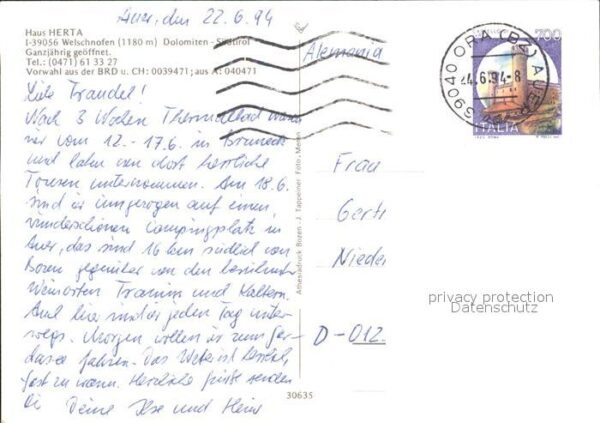 Auer, den 22.6.94
Haus HERTA
I-39056 Welschnofen (1180 m) Dolomiten - Südtirol
Ganzjährig geöffnet.
Tel.: (0471) 61 33 27
Vorwahl aus der BRD u. CH: 0039471; aus A: 040471
Liebe Traudel!
Nach 3 Wochen Thermalbad waren
wir vom 12.-17.6. in Bruneck
und haben von dort herrliche
Touren unternommen. Am 18.6.
sind wir umgezogen auf einen
wunderschönen Campingplatz in
Auer, das sind 16 km südlich von
Bozen gegenüber von den berühmten
Weinorten Tramin und Kaltern.
Auch hier sind wir jeden Tag unter-
wegs. Morgen wollen wir zum Gar-
dasee fahren. Das Wetter ist herrlich,
fast zu warm. Herzliche Grüße senden
Dir Deine Ilse und Heinz
30635
Athesiadruck Bozen - J. Tappeiner Foto, Meran
Alemania
700
39040 ORA (BZ) AUER
24.6.94-8
ITALIA
Frau
Gert
Nieder
D-012
privacy protection
Datenschutz